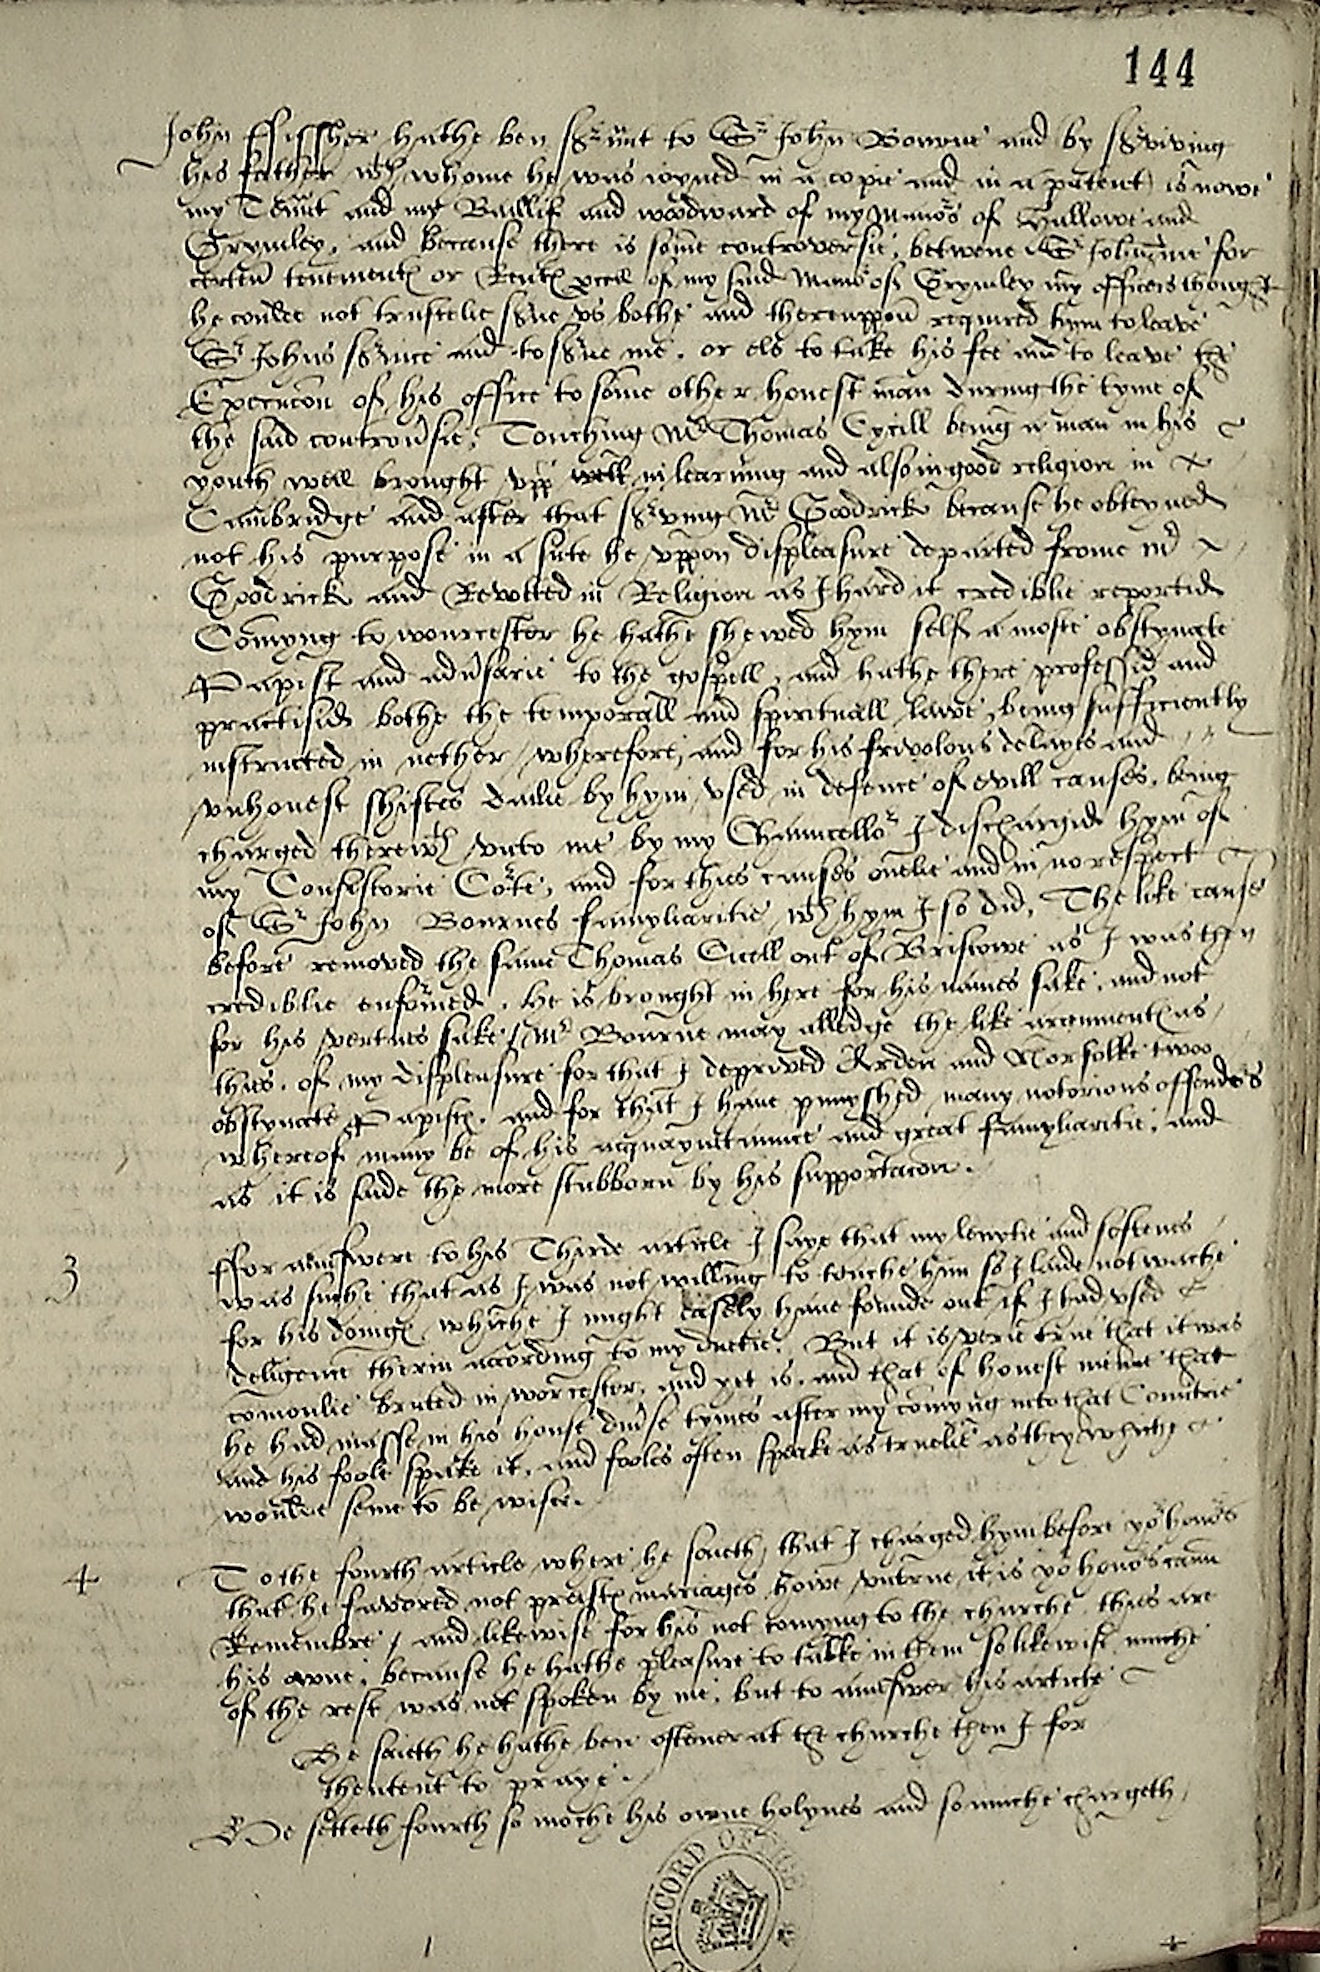 144
John Ffissher hathe ben s'unt to Sr John Bourne and by s'viving
his father wth whome he was ioyned in a copie and in a patent is nowe
my Ten'nt and my Baillif and woodward of my Mano's of Hallowe and
Grymley, and because there is some controversie, betwene Sr John & me for
certen tenement or Rent p'cell of my said Mano' of Grymley my officers thought
he coulde not trustelie s've vs bothe and thereuppon required hym to leave
Sr Johns s'vice and to s've me, or els to take his fee and to leave the
Execucon of his office to some other honest man during the tyme of
the said controu'sie, Touching Mr Thomas Cycill being a man in his
youth well brought vpp in learning and also in good religion in
Cambridge and after that s'ving Mr Goodrick because he obteyned
not his purpose in a sute he vppon displeasure departed frome Mr
Goodrick and Revolted in Religion as I hard it crediblie reportid
Comyng to worcester he hathe shewed hym self a moste obstynate
Papist and adu'sarie to the gospell, and hathe there professid and
practisid bothe the temporall and spirituall lawe, being sufficiently
instructed in nether, wherefore, and for his frivolous delayes and
vnhonest shiftes dailie by hym vsed in defence of evill causes, being
charged therewth vnto me by my Chauncello' I dischargid hym of
my Consistorie Co'te, and for thies causes onelie and in no respect
of Sr John Bournes famyliaritie wth hym I so did, The like cause
before removed the same Thomas Cicell out of Bristowe as I was then
crediblie enformed. he is brought in here for his names sake, and not
for his vertues sake / Mr Bourne may alledge the like argument as
thies, of my displeasure for that I deprived Arden and Norfolke twoo
obstynate Papist, and for that I have punyshed many notorious offendo's
whereof many be of his acquayntaunce and great famyliaritie, and
as it is saide the more stubborn by his supportacon.
3
Ffor aunswere to his Thirde article I saye that my lenytie and softenes
was suche that as I was not willing to touche hym so I laide not watche
for his doing, whiche I might easely have founde out if I had vsed
deligence therin according to my duetie. But it is verie true that it was
comonlie bruted in worcester, and yet is, and that of honest men that
he had masse in his house diu'se tymes after my comyng into that Countrie
and his foole spake it, and fooles often speake as truelie as they which
woulde seme to be wiser.
4
To the fourth article where he saieth, that I charged hym before yo' hono's
that he favored not preest mariages howe vntrue it is yo' hono's cann
Remembre / and likewise for his not comyng to the churche, thies are
his owne, because he hathe pleasure to talke in them so likewise muche
of the rest was not spoken by me, but to aunswer his article
He saieth he hathe ben oftener at the churche then I for
thentent to praye.
He setteth fourth so moche his owne holynes and so muche chargeth
RECORD OFFICE